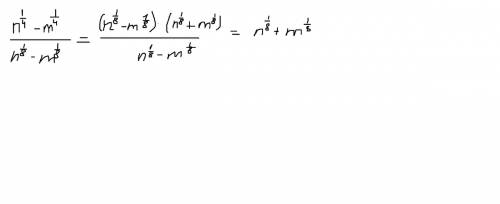 \frac{n^{\frac{1}{4}} - m^{\frac{1}{4}}}{n^{\frac{1}{8}} - m^{\frac{1}{8}}} = \frac{(n^{\frac{1}{8}} - m^{\frac{1}{8}}) \cdot (n^{\frac{1}{8}} + m^{\frac{1}{8}})}{n^{\frac{1}{8}} - m^{\frac{1}{8}}} = n^{\frac{1}{8}} + m^{\frac{1}{8}}